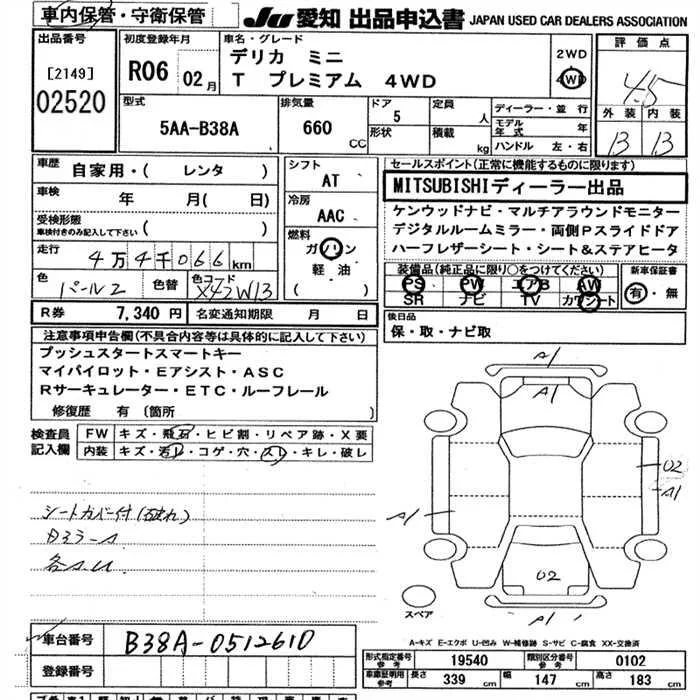 車内保管・守衛保管
JU 愛知 出品申込書 JAPAN USED CAR DEALERS ASSOCIATION
出品番号
[2149]
02520
初度登録年月
R06 02月
車名・グレード
デリカ ミニ
T プレミアム 4WD
2WD
4WD
評価点
4.5
外装 内装
B B
型式
5AA-B38A
排気量
660 CC
ドア 5
形状
定員 人
積載 kg
ディーラー・並行
モデル年式 年
ハンドル 左・右
車歴 自家用・( レンタ )
車検 年 月( 日)
受検形態
車検付きのみ記入して下さい ( )
走行 4万4千066km
色 パール2 色替 色コード X42W13
シフト
AT
冷房
AAC
燃料
ガソリン
軽油
( )
セールスポイント(正常に機能するものに限ります)
MITSUBISHIディーラー出品
ケンウッドナビ・マルチアラウンドモニター
デジタルルームミラー・両側Pスライドドア
ハーフレザーシート・シート&ステアヒータ
装備品(純正品に限り○をつけてください)
PS PW エアB AW
SR ナビ TV カワシート
新車保証書
有・無
R券 7,340円 名変通知期限 月 日
後日品
保・取・ナビ取
注意事項申告欄(不具合内容等は具体的に記入して下さい)
プッシュスタートスマートキー
マイパイロット・Eアシスト・ASC
Rサーキュレーター・ETC・ルーフレール
修復歴 有 (箇所 )
検査員記入欄
FW キズ・飛石・ヒビ割・リペア跡・X要
内装 キズ・汚レ・コゲ・穴・スレ・キレ・破レ
シートカバー付(破れ)
A1
A1
02
A1
A1
02
A1
スペア
A-キズ E-エクボ U-凹み W-補修跡 S-サビ C-腐食 XX-交換済
車台番号 B38A-0512610
登録番号
型式指定番号 参考 19540 類別区分番号 参考 0102
車庫証明用 参考 長さ 339 cm 幅 147 cm 高さ 183 cm